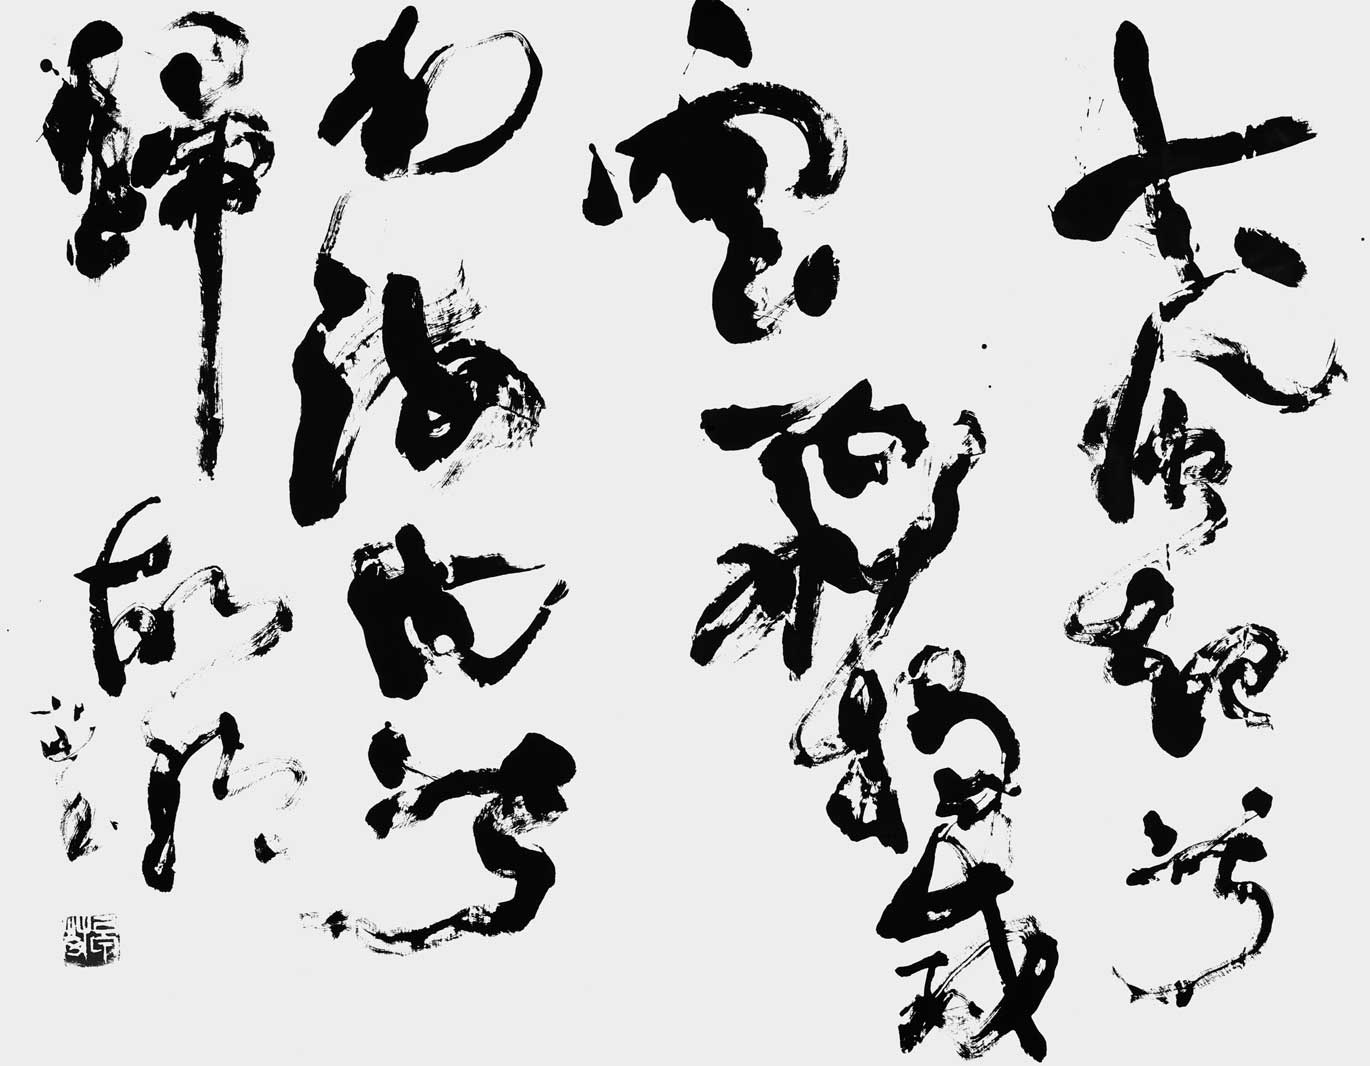 大風起兮
雲飛揚威
加海内兮
歸故鄉